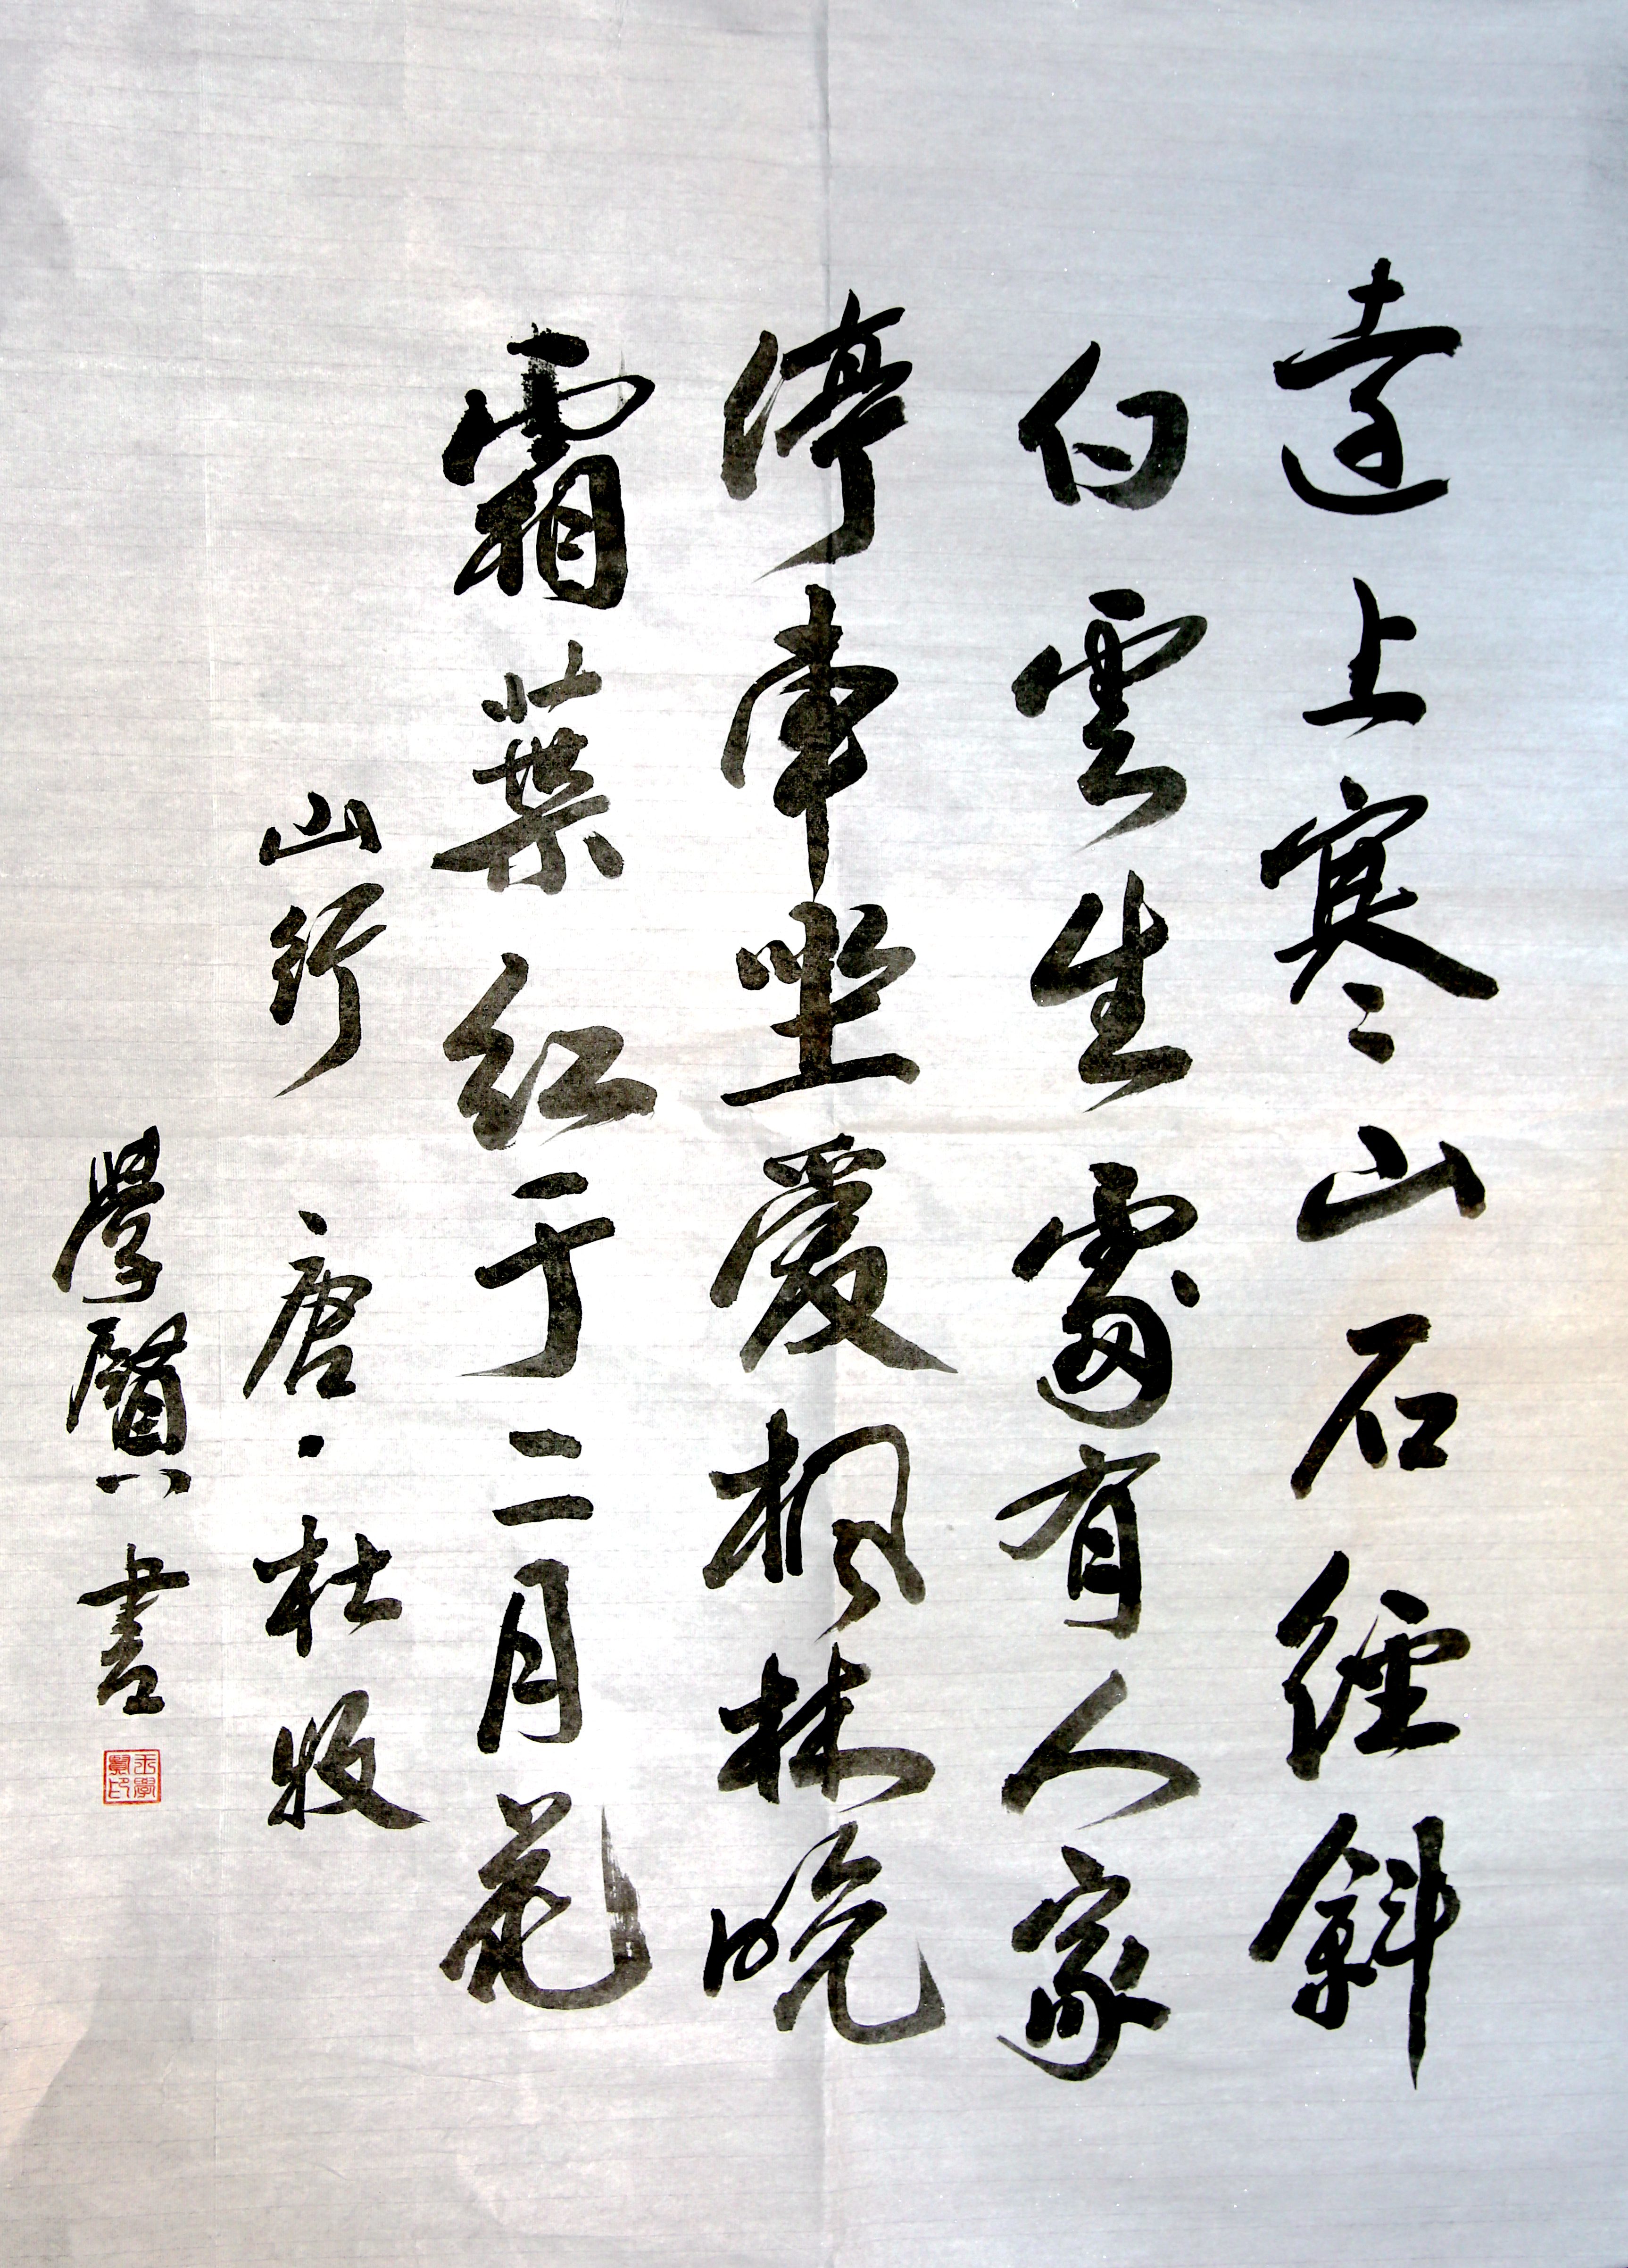 遠上寒山石經斜
白雲生處有人家
停車坐愛楓林晚
霜葉紅于二月花
山行 唐·杜牧
學賢書
學賢印